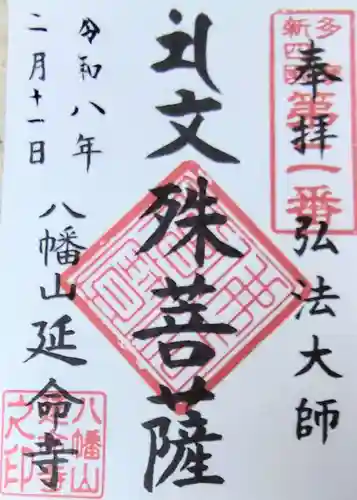 奉拝 弘法大師
多摩
新四国
第一番
礼文殊菩薩
令和八年
二月十一日
八幡山 延命寺
八幡山
延命寺
之印